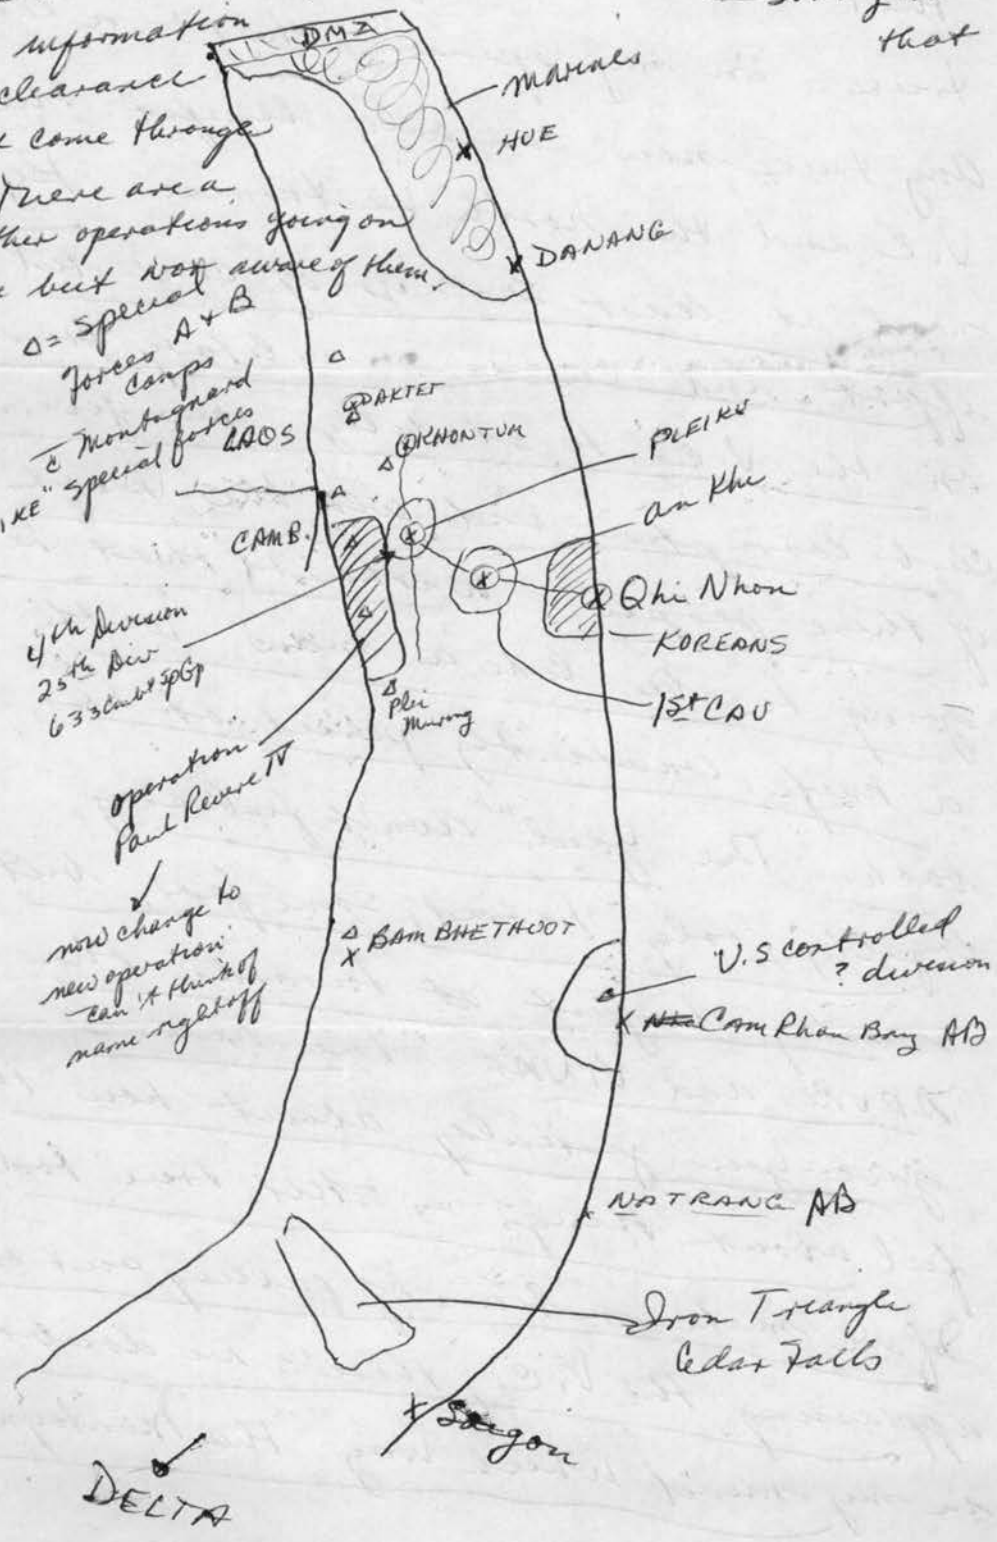 that
information
clearance
come through
There are a
operations going on
but not aware of them.
DMZ
Marines
HUE
DANANG
Δ = Special
Forces A + B
Camps
c̄ Montagnard
"special forces
LAOS
DAKTET
KHONTUM
PLEIKU
An Khe
CAMB.
Qhi Nhon
KOREANS
1st CAV
4th Division
25th Div
633 Cmbt Sp Gp
Plei
Murong
operation
Paul Revere IV
now change to
new operation
can't think of
name right off
BAM BHETHUOT
U.S controlled
? division
Cam Rhan Bay AB
NATRANG AB
Iron Triangle
Cedar Falls
Saigon
DELTA